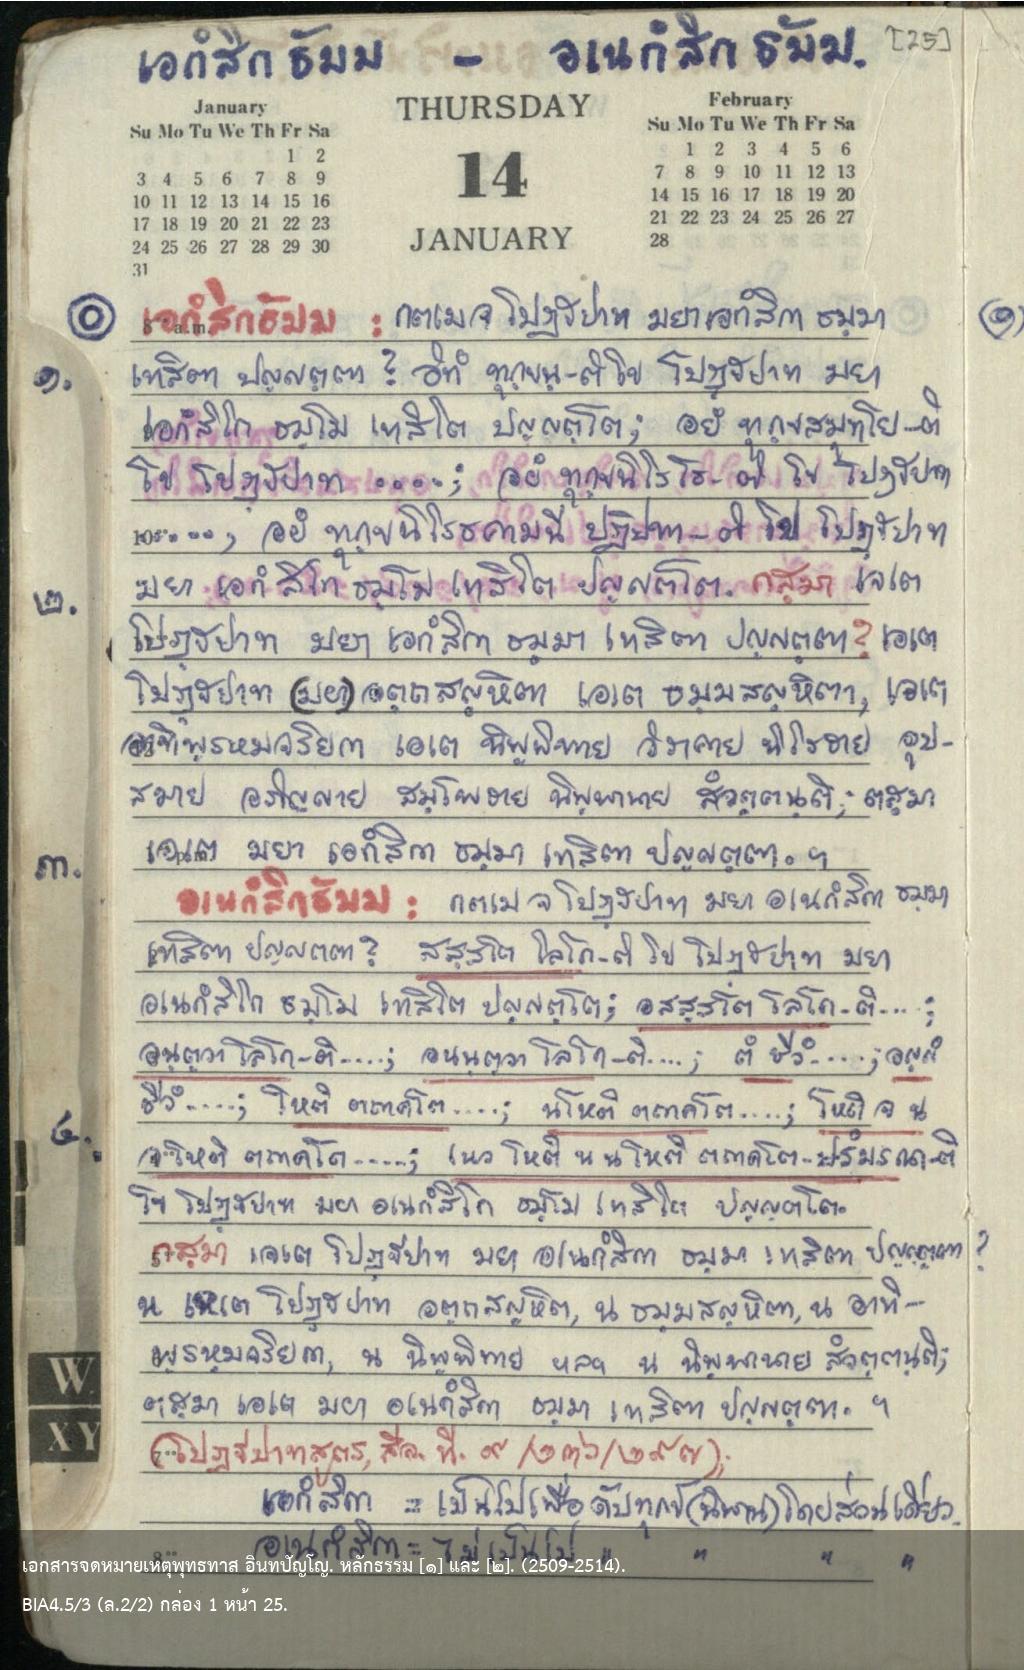 เอกํสิกธัมม - อเนกํสิกธัมม. [25]
January
Su Mo Tu We Th Fr Sa
1 2
3 4 5 6 7 8 9
10 11 12 13 14 15 16
17 18 19 20 21 22 23
24 25 26 27 28 29 30
31
THURSDAY
14
JANUARY
February
Su Mo Tu We Th Fr Sa
1 2 3 4 5 6
7 8 9 10 11 12 13
14 15 16 17 18 19 20
21 22 23 24 25 26 27
28
เอกํสิกธัมม : กตเม จ โปฏฺฐปาท มยา เอกํสิกา ธมฺมา (๑)
๑. เทสิตา ปญฺญตฺตา? อิทํ ทุกฺขนฺ-ติ โข โปฏฺฐปาท มยา
เอกํสิโก ธมฺโม เทสิโต ปญฺญตฺโต; อยํ ทุกฺขสมุทโย-ติ
โข โปฏฺฐปาท ....; อยํ ทุกฺขนิโรโธ-ติ โข โปฏฺฐปาท
....; อยํ ทุกฺขนิโรธคามินี ปฏิปทา-ติ โข โปฏฺฐปาท
๒. มยา เอกํสิโก ธมฺโม เทสิโต ปญฺญตฺโต. กสฺมา เจเต
โปฏฺฐปาท มยา เอกํสิกา ธมฺมา เทสิตา ปญฺญตฺตา? เอเต
โปฏฺฐปาท (มยา) อตฺถสญฺหิตา เอเต ธมฺมสญฺหิตา, เอเต
อาทิพฺรหฺมจริยกา เอเต นิพฺพิทาย วิราคาย นิโรธาย อุป-
สมาย อภิญฺญาย สมฺโพธาย นิพฺพานาย สํวตฺตนฺติ; ตสฺมา
๓. เอเต มยา เอกํสิกา ธมฺมา เทสิตา ปญฺญตฺตา. ฯ
อเนกํสิกธัมม : กตเม จ โปฏฺฐปาท มยา อเนกํสิกา ธมฺมา
เทสิตา ปญฺญตฺตา? สสฺสโต โลโก-ติ โข โปฏฺฐปาท มยา
อเนกํสิโก ธมฺโม เทสิโต ปญฺญตฺโต; อสสฺสโต โลโก-ติ....;
อนฺตวา โลโก-ติ....; อนนฺตวา โลโก-ติ....; ตํ ชีวํ....; อญฺญํ
ชีวํ....; โหติ ตถาคโต....; น โหติ ตถาคโต....; โหติ จ น
๔. จ โหติ ตถาคโต....; เนว โหติ น น โหติ ตถาคโต-ปรํมรณา-ติ
โข โปฏฺฐปาท มยา อเนกํสิโก ธมฺโม เทสิโต ปญฺญตฺโต.
กสฺมา เจเต โปฏฺฐปาท มยา อเนกํสิกา ธมฺมา เทสิตา ปญฺญตฺตา ?
น เหเต โปฏฺฐปาท อตฺถสญฺหิตา, น ธมฺมสญฺหิตา, น อาทิ-
พฺรหฺมจริยกา, น นิพฺพิทาย ฯลฯ น นิพฺพานาย สํวตฺตนฺติ;
ตสฺมา เอเต มยา อเนกํสิกา ธมฺมา เทสิตา ปญฺญตฺตา. ฯ
W
XY
(โปฏฺฐปาทสูตร, สีล. ที. ๙/๒๓๖/๒๙๗);
เอกํสิกา = เป็นไปเพื่อดับทุกข์(นิพพาน)โดยส่วนเดียว.
อเนกํสิกา = ไม่เป็นไป " " " "
เอกสารจดหมายเหตุพุทธทาส อินทปัญโญ. หลักธรรม [๑] และ [๒]. (2509-2514).
BIA4.5/3 (ล.2/2) กล่อง 1 หน้า 25.